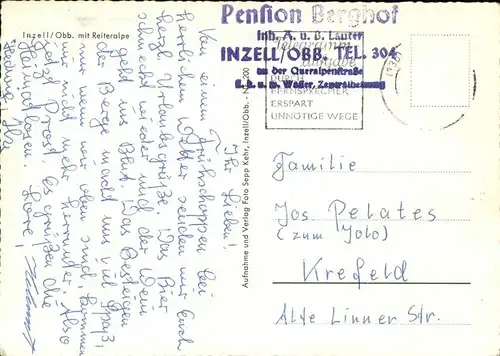 Inzell/Obb. mit Reiteralpe
Pension Berghof
Inh. A. u. B. Lauter
INZELL/OBB. TEL. 304
an der Queralpenstraße
f. k. u. w. Wasser, Zentralheizung
Telegramm
DURCH
FERNSPRECHER
ERSPART
UNNÖTIGE WEGE
Aufnahme und Verlag Foto Sepp Kehr, Inzell/Obb. - Nr. 200
Ihr Lieben!
Von einem Frühschoppen bei
herrlichem Wetter senden wir Euch
herzl. Urlaubsgrüße. Das Bier
schmeckt wieder und der Wein
geht ins Blut. Das Besteigen
der Berge macht uns viel Spaß,
nur wenn wir oben sind, kommen
wir nicht mehr herunter. Also
jetzt Prost! Es grüßen die
Heimatlosen.
Familie
Jos. Pelates
(zum Jolo)
Krefeld
Alte Linner Str.